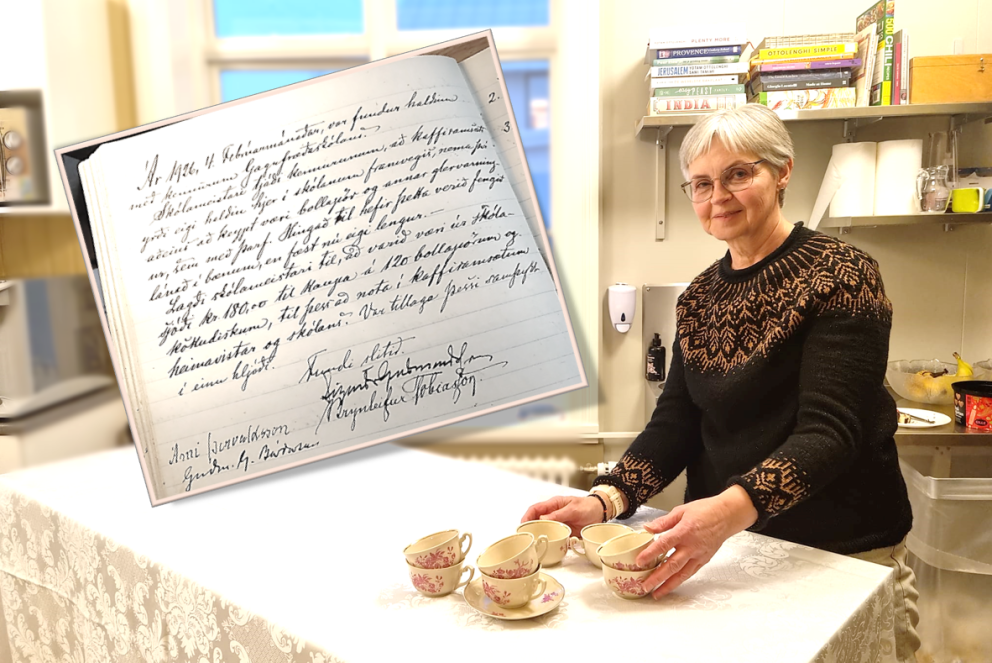 PLENTY MORE
PROVENCE
JERUSALEM
FEAST
INDIA
OTTOLENGHI SIMPLE
500 CHILI
2.
3
Ár 1926, 4. Febrúarmánaðar, var fundur haldinn
með kennurum Gagnfræðaskólans.
Skólameistari tjáði kennurunum, að kaffisamsæti
yrði eigi haldin hjer í skólanum framvegis, nema því
aðeins að keypt væri bollapör og annar glervarning-
ur, sem með þarf. Hingað til hefir þetta verið fengið
lánað í bænum, en fæst nú eigi lengur.
Lagði skólameistari til, að varið væri úr skóla-
sjóði kr. 180,00 til kaupa á 120 bollapörum og
kökudiskum, til þess að nota í kaffisamsætum
heimavistar og skólans. Var tillaga þessi samþykt
í einu hljóði.
Fundi slitið.
Sigurðr Guðmundsson
Brynleifur Tobiasson.
Árni Þorvaldsson
Guðm. G. Bárðarson